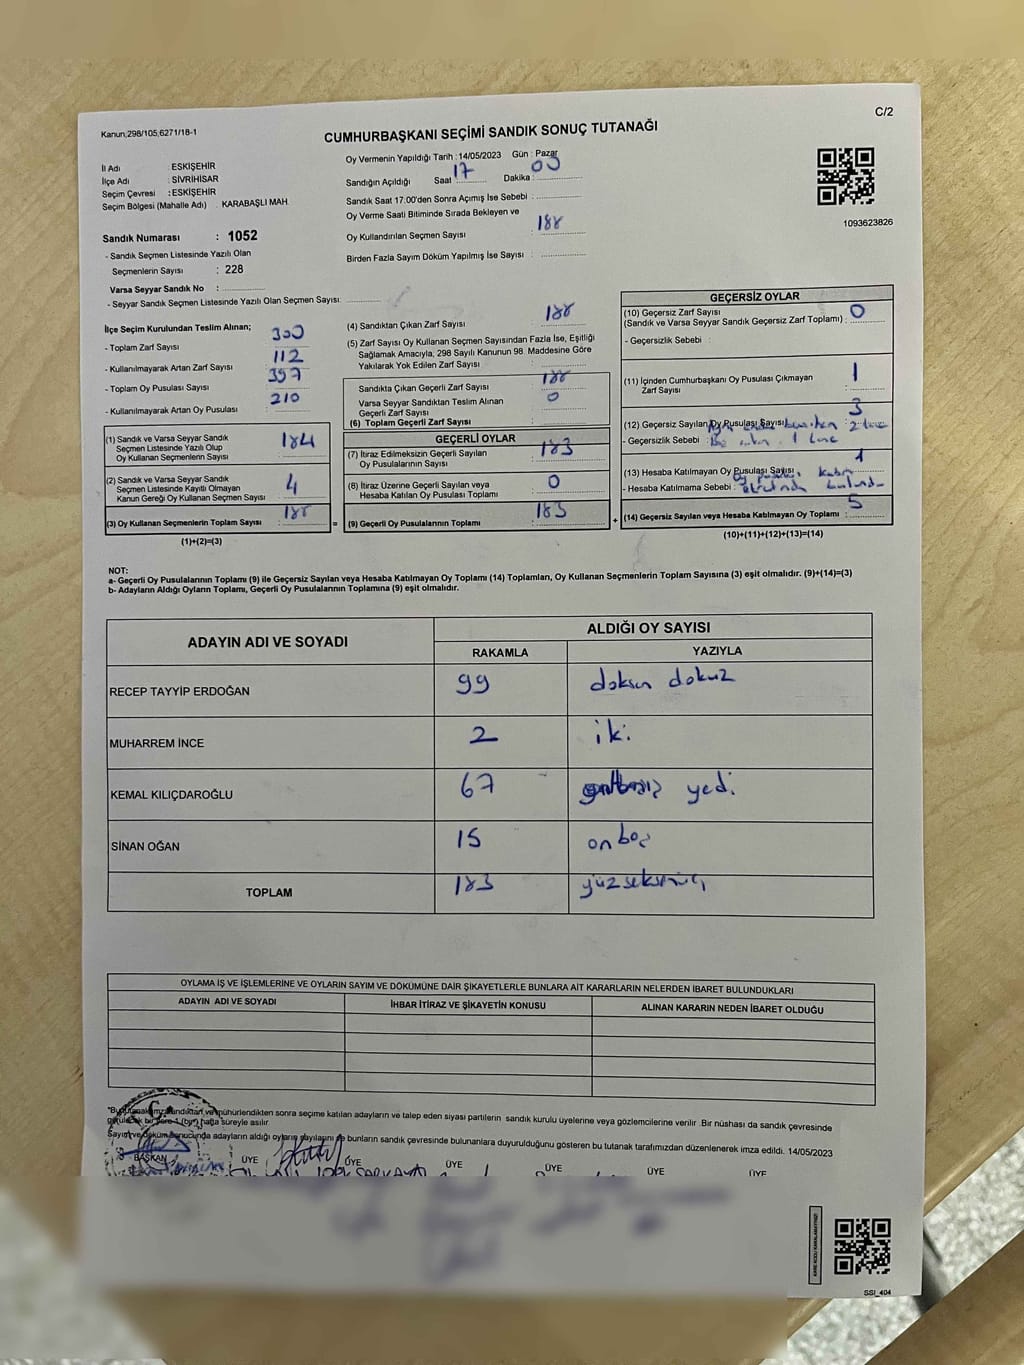 Kanun;298/105,6271/18-1
C/2
CUMHURBAŞKANI SEÇİMİ SANDIK SONUÇ TUTANAĞI
İl Adı : ESKİŞEHİR
İlçe Adı : SİVRİHİSAR
Seçim Çevresi : ESKİŞEHİR
Seçim Bölgesi (Mahalle Adı) : KARABAŞLI MAH.
Oy Vermenin Yapıldığı Tarih :14/05/2023 Gün : Pazar
Sandığın Açıldığı Saat 17 Dakika : 03
Sandık Saat 17.00'den Sonra Açımış İse Sebebi :
Oy Verme Saati Bitiminde Sırada Bekleyen ve
Oy Kullandırılan Seçmen Sayısı : 188
Birden Fazla Sayım Döküm Yapılmış İse Sayısı :
1093623826
Sandık Numarası : 1052
- Sandık Seçmen Listesinde Yazılı Olan
Seçmenlerin Sayısı : 228
Varsa Seyyar Sandık No :
- Seyyar Sandık Seçmen Listesinde Yazılı Olan Seçmen Sayısı:
İlçe Seçim Kurulundan Teslim Alınan;
- Toplam Zarf Sayısı : 300
- Kullanılmayarak Artan Zarf Sayısı : 112
- Toplam Oy Pusulası Sayısı : 397
- Kullanılmayarak Artan Oy Pusulası : 210
(1) Sandık ve Varsa Seyyar Sandık
Seçmen Listesinde Yazılı Olup
Oy Kullanan Seçmenlerin Sayısı : 184
(2) Sandık ve Varsa Seyyar Sandık
Seçmen Listesinde Kayıtlı Olmayan
Kanun Gereği Oy Kullanan Seçmen Sayısı : 4
(3) Oy Kullanan Seçmenlerin Toplam Sayısı : 188
(1)+(2)=(3)
(4) Sandıktan Çıkan Zarf Sayısı : 188
(5) Zarf Sayısı Oy Kullanan Seçmen Sayısından Fazla İse, Eşitliği
Sağlamak Amacıyla, 298 Sayılı Kanunun 98. Maddesine Göre
Yakılarak Yok Edilen Zarf Sayısı :
Sandıkta Çıkan Geçerli Zarf Sayısı : 188
Varsa Seyyar Sandıktan Teslim Alınan
Geçerli Zarf Sayısı : 0
(6) Toplam Geçerli Zarf Sayısı :
GEÇERLİ OYLAR
(7) İtiraz Edilmeksizin Geçerli Sayılan
Oy Pusulalarının Sayısı : 183
(8) İtiraz Üzerine Geçerli Sayılan veya
Hesaba Katılan Oy Pusulası Toplamı : 0
(9) Geçerli Oy Pusulalarının Toplamı : 183
GEÇERSİZ OYLAR
(10) Geçersiz Zarf Sayısı
(Sandık ve Varsa Seyyar Sandık Geçersiz Zarf Toplamı) : 0
- Geçersizlik Sebebi :
(11) İçinden Cumhurbaşkanı Oy Pusulası Çıkmayan
Zarf Sayısı : 1
(12) Geçersiz Sayılan Oy Pusulası Sayısı : 3
- Geçersizlik Sebebi :
(13) Hesaba Katılmayan Oy Pusulası Sayısı : 1
- Hesaba Katılmama Sebebi :
(14) Geçersiz Sayılan veya Hesaba Katılmayan Oy Toplamı : 5
(10)+(11)+(12)+(13)=(14)
NOT:
a- Geçerli Oy Pusulalarının Toplamı (9) ile Geçersiz Sayılan veya Hesaba Katılmayan Oy Toplamı (14) Toplamları, Oy Kullanan Seçmenlerin Toplam Sayısına (3) eşit olmalıdır. (9)+(14)=(3)
b- Adayların Aldığı Oyların Toplamı, Geçerli Oy Pusulalarının Toplamına (9) eşit olmalıdır.
ADAYIN ADI VE SOYADI
ALDIĞI OY SAYISI
RAKAMLA YAZIYLA
RECEP TAYYİP ERDOĞAN 99 doksan dokuz
MUHARREM İNCE 2 iki
KEMAL KILIÇDAROĞLU 67 yedi
SİNAN OĞAN 15 onbeş
TOPLAM 183 yüzseksenüç
OYLAMA İŞ VE İŞLEMLERİNE VE OYLARIN SAYIM VE DÖKÜMÜNE DAİR ŞİKAYETLERLE BUNLARA AİT KARARLARIN NELERDEN İBARET BULUNDUKLARI
ADAYIN ADI VE SOYADI İHBAR İTİRAZ VE ŞİKAYETİN KONUSU ALINAN KARARIN NEDEN İBARET OLDUĞU
sonra seçime katılan adayların ve talep eden siyası partilerin sandık kurulu üyelerine veya gözlemcilerine verilir. Bir nüshası da sandık çevresinde
hafta süreyle asılır.
adayların aldığı oyların sayılasını bunların sandık çevresinde bulunanlara duyurulduğunu gösteren bu tutanak tarafımızdan düzenlenerek imza edildi. 14/05/2023
BAŞKAN ÜYE ÜYE ÜYE ÜYE ÜYE ÜYE
SSİ_404